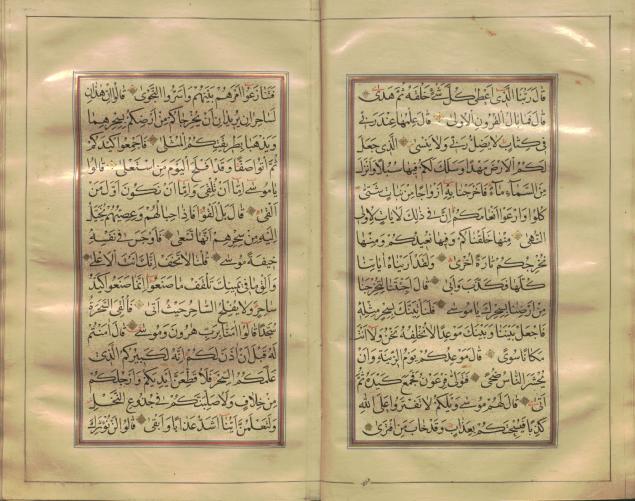 قَالَ رَبُّنَا الَّذِي أَعْطَى كُلَّ شَيْءٍ خَلْقَهُ ثُمَّ هَدَى
قَالَ فَمَا بَالُ الْقُرُونِ الْأُولَى قَالَ عِلْمُهَا عِنْدَ رَبِّي
فِي كِتَابٍ لَا يَضِلُّ رَبِّي وَلَا يَنْسَى الَّذِي جَعَلَ
لَكُمُ الْأَرْضَ مَهْدًا وَسَلَكَ لَكُمْ فِيهَا سُبُلًا وَأَنْزَلَ
مِنَ السَّمَاءِ مَاءً فَأَخْرَجْنَا بِهِ أَزْوَاجًا مِنْ نَبَاتٍ شَتَّى
كُلُوا وَارْعَوْا أَنْعَامَكُمْ إِنَّ فِي ذَلِكَ لَآيَاتٍ لِأُولِي
النُّهَى مِنْهَا خَلَقْنَاكُمْ وَفِيهَا نُعِيدُكُمْ وَمِنْهَا
نُخْرِجُكُمْ تَارَةً أُخْرَى وَلَقَدْ أَرَيْنَاهُ آيَاتِنَا
كُلَّهَا فَكَذَّبَ وَأَبَى قَالَ أَجِئْتَنَا لِتُخْرِجَنَا
مِنْ أَرْضِنَا بِسِحْرِكَ يَا مُوسَى فَلَنَأْتِيَنَّكَ بِسِحْرٍ مِثْلِهِ
فَاجْعَلْ بَيْنَنَا وَبَيْنَكَ مَوْعِدًا لَا نُخْلِفُهُ نَحْنُ وَلَا أَنْتَ
مَكَانًا سُوًى قَالَ مَوْعِدُكُمْ يَوْمُ الزِّينَةِ وَأَنْ
يُحْشَرَ النَّاسُ ضُحًى فَتَوَلَّى فِرْعَوْنُ فَجَمَعَ كَيْدَهُ ثُمَّ
أَتَى قَالَ لَهُمْ مُوسَى وَيْلَكُمْ لَا تَفْتَرُوا عَلَى اللَّهِ
كَذِبًا فَيُسْحِتَكُمْ بِعَذَابٍ وَقَدْ خَابَ مَنِ افْتَرَى
فَتَنَازَعُوا أَمْرَهُمْ بَيْنَهُمْ وَأَسَرُّوا النَّجْوَى قَالُوا إِنْ هَذَانِ
لَسَاحِرَانِ يُرِيدَانِ أَنْ يُخْرِجَاكُمْ مِنْ أَرْضِكُمْ بِسِحْرِهِمَا
وَيَذْهَبَا بِطَرِيقَتِكُمُ الْمُثْلَى فَأَجْمِعُوا كَيْدَكُمْ
ثُمَّ ائْتُوا صَفًّا وَقَدْ أَفْلَحَ الْيَوْمَ مَنِ اسْتَعْلَى قَالُوا
يَا مُوسَى إِمَّا أَنْ تُلْقِيَ وَإِمَّا أَنْ نَكُونَ أَوَّلَ مَنْ
أَلْقَى قَالَ بَلْ أَلْقُوا فَإِذَا حِبَالُهُمْ وَعِصِيُّهُمْ يُخَيَّلُ
إِلَيْهِ مِنْ سِحْرِهِمْ أَنَّهَا تَسْعَى فَأَوْجَسَ فِي نَفْسِهِ
خِيفَةً مُوسَى قُلْنَا لَا تَخَفْ إِنَّكَ أَنْتَ الْأَعْلَى
وَأَلْقِ مَا فِي يَمِينِكَ تَلْقَفْ مَا صَنَعُوا إِنَّمَا صَنَعُوا كَيْدُ
سَاحِرٍ وَلَا يُفْلِحُ السَّاحِرُ حَيْثُ أَتَى فَأُلْقِيَ السَّحَرَةُ
سُجَّدًا قَالُوا آمَنَّا بِرَبِّ هَارُونَ وَمُوسَى قَالَ آمَنْتُمْ
لَهُ قَبْلَ أَنْ آذَنَ لَكُمْ إِنَّهُ لَكَبِيرُكُمُ الَّذِي
عَلَّمَكُمُ السِّحْرَ فَلَأُقَطِّعَنَّ أَيْدِيَكُمْ وَأَرْجُلَكُمْ
مِنْ خِلَافٍ وَلَأُصَلِّبَنَّكُمْ فِي جُذُوعِ النَّخْلِ
وَلَتَعْلَمُنَّ أَيُّنَا أَشَدُّ عَذَابًا وَأَبْقَى قَالُوا لَنْ نُؤْثِرَكَ